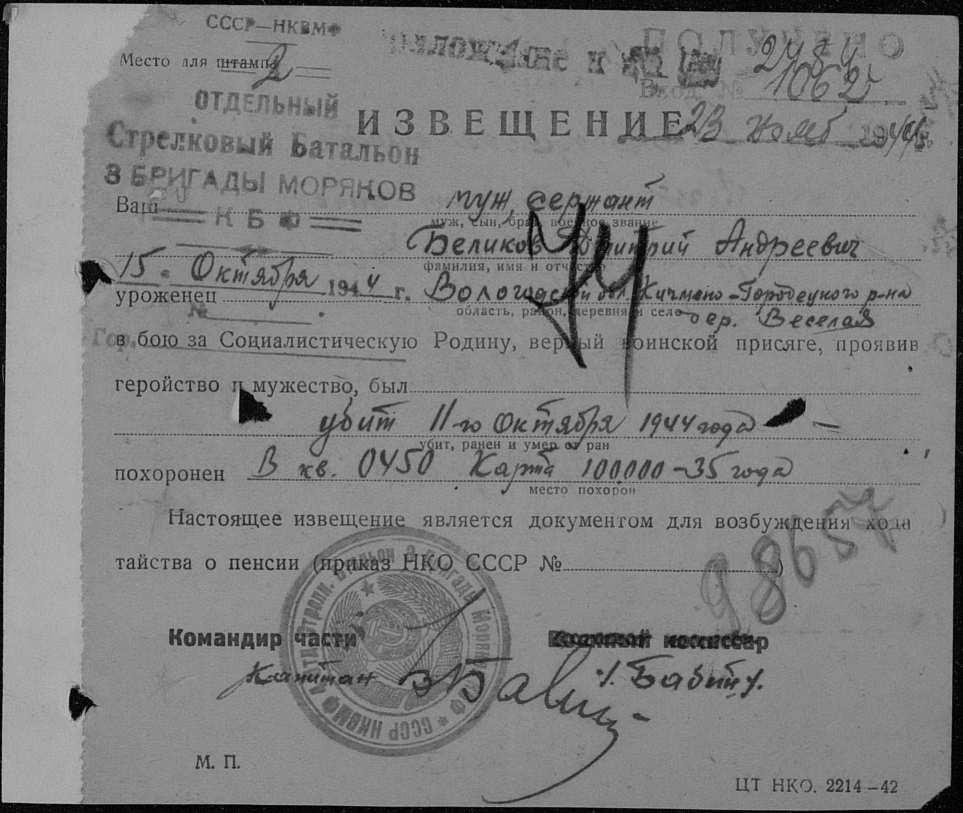 СССР—НКВМФ
Место для штампа
2
ПОЛУЧЕНО
2484
Вход. № 1062
ОТДЕЛЬНЫЙ
Стрелковый Батальон
3 БРИГАДЫ МОРЯКОВ
К Б Ф
ИЗВЕЩЕНИЕ
23 1944
Ваш муж, сержант
муж, сын, брат, военное звание
Беликов Дмитрий Андреевич
фамилия, имя и отчество
15 Октября 1944 г.
уроженец Вологодской обл. Кичмено-Городецкого р-на
область, район, деревня и село
дер. Веселая
№
Гор.
в бою за Социалистическую Родину, верный воинской присяге, проявив
геройство и мужество, был
убит 11-го Октября 1944 года
убит, ранен и умер от ран
похоронен В кв. 0450 Карта 100.000-35 года
место похорон
Настоящее извещение является документом для возбуждения хода
тайства о пенсии (приказ НКО СССР № )
98657
Командир части
Военный комиссар
Капитан
М. П.
ЦТ НКО. 2214—42